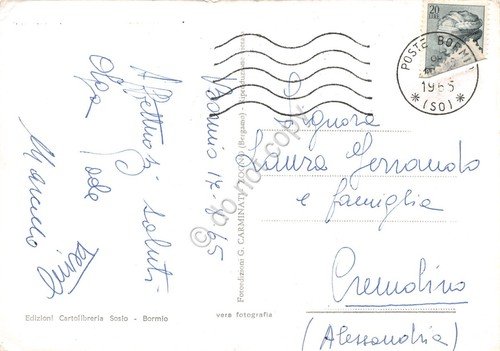 Bormio 17-8-65
Affettuosi saluti
Olga
Marcello
Signora
Laura Ferrando
e famiglia
Cremolino
(Alessandria)
20
LIRE
POSTE BORMIO
1965
* (SO) *
Fotoedizioni G. CARMINATI
(Bergamo)
Edizioni Cartolibreria Sosio - Bormio
vera fotografia
do not copy